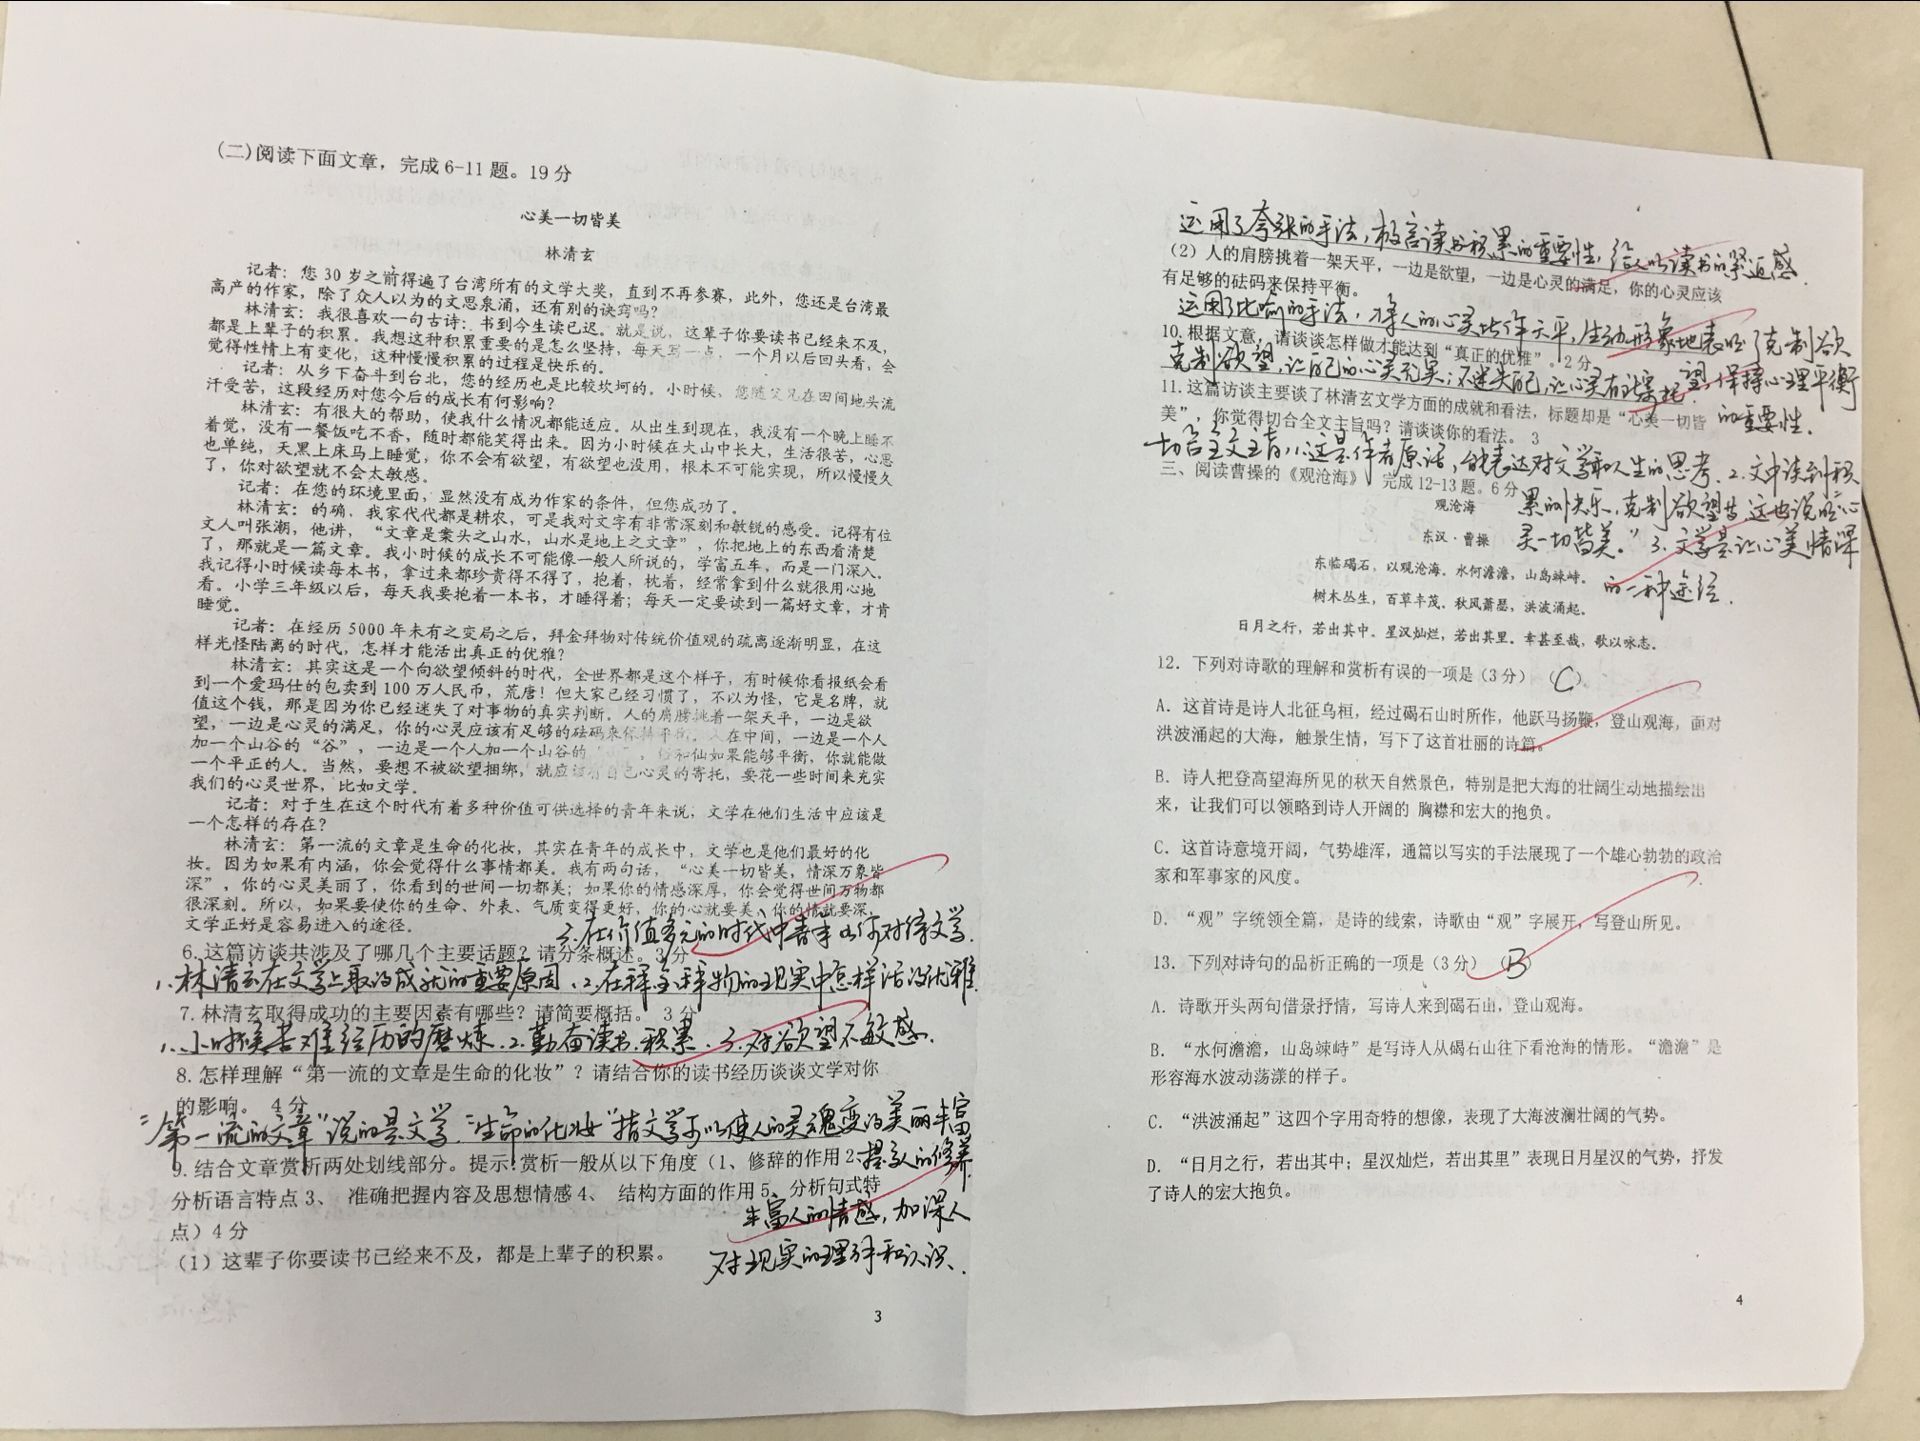 (二)阅读下面文章，完成6-11题。19分
心美一切皆美
林清玄
记者：您30岁之前得遍了台湾所有的文学大奖，直到不再参赛，此外，您还是台湾最
高产的作家，除了众人以为的文思泉涌，还有别的诀窍吗？
林清玄：我很喜欢一句古诗：书到今生读已迟。就是说，这辈子你要读书已经来不及，
都是上辈子的积累。我想这种积累重要的是怎么坚持，每天写一点，一个月以后回头看，会
觉得性情上有变化，这种慢慢积累的过程是快乐的。
记者：从乡下奋斗到台北，您的经历也是比较坎坷的。小时候，您随父兄在田间地头流
汗受苦，这段经历对您今后的成长有何影响？
林清玄：有很大的帮助，使我什么情况都能适应。从出生到现在，我没有一个晚上睡不
着觉，没有一餐饭吃不香，随时都能笑得出来。因为小时候在大山中长大，生活很苦，心思
也单纯，天黑上床马上睡觉，你不会有欲望，有欲望也没用，根本不可能实现，所以慢慢久
了，你对欲望就不会太敏感。
记者：在您的环境里面，显然没有成为作家的条件，但您成功了。
林清玄：的确，我家代代都是耕农，可是我对文字有非常深刻和敏锐的感受。记得有位
文人叫张潮，他讲，“文章是案头之山水，山水是地上之文章”，你把地上的东西看清楚
了，那就是一篇文章。我小时候的成长不可能像一般人所说的，学富五车，而是一门深入。
我记得小时候读每本书，拿过来都珍贵得不得了，抱着，枕着，经常拿到什么就很用心地
看。小学三年级以后，每天我要抱着一本书，才睡得着；每天一定要读到一篇好文章，才肯
睡觉。
记者：在经历5000年未有之变局之后，拜金拜物对传统价值观的疏离逐渐明显，在这
样光怪陆离的时代，怎样才能活出真正的优雅？
林清玄：其实这是一个向欲望倾斜的时代，全世界都是这个样子，有时候你看报纸会看
到一个爱玛仕的包卖到100万人民币，荒唐！但大家已经习惯了，不以为怪，它是名牌，就
值这个钱，那是因为你已经迷失了对事物的真实判断。人的肩膀挑着一架天平，一边是欲
望，一边是心灵的满足，你的心灵应该有足够的砝码来保持平衡。人在中间，一边是一个人
加一个山谷的“谷”，一边是一个人加一个山谷的 ，俗和仙如果能够平衡，你就能做
一个平正的人。当然，要想不被欲望捆绑，就应该有自己心灵的寄托，要花一些时间来充实
我们的心灵世界，比如文学。
记者：对于生在这个时代有着多种价值可供选择的青年来说，文学在他们生活中应该是
一个怎样的存在？
林清玄：第一流的文章是生命的化妆，其实在青年的成长中，文学也是他们最好的化
妆。因为如果有内涵，你会觉得什么事情都美。我有两句话，“心美一切皆美，情深万象皆
深”，你的心灵美丽了，你看到的世间一切都美；如果你的情感深厚，你会觉得世间万物都
很深刻。所以，如果要使你的生命、外表、气质变得更好，你的心就要美，你的情就要深，
文学正好是容易进入的途径。
3.在价值多元的时代中青年如何对待文学.
6.这篇访谈共涉及了哪几个主要话题？请分条概述。3分
1.林清玄在文学上取得成就的重要原因.2.在拜金拜物的现实中怎样活没优雅
7.林清玄取得成功的主要因素有哪些？请简要概括。 3分
1.小时候苦难经历的磨炼.2.勤奋读书.积累.3.对欲望不敏感.
8.怎样理解“第一流的文章是生命的化妆”？请结合你的读书经历谈谈文学对你
的影响。 4分
“第一流的文章”说的是文学.“生命的化妆”指文学可以使人的灵魂变得美丽丰富
9.结合文章赏析两处划线部分。提示:赏析一般从以下角度（1、修辞的作用2、
提高人的修养
分析语言特点3、 准确把握内容及思想情感4、 结构方面的作用5、分析句式特
丰富人的情感，加深人
点）4分
对现实的理解和认识.
（1）这辈子你要读书已经来不及，都是上辈子的积累。
3
运用了夸张的手法，极言读书积累的重要性，给人以读书的紧迫感
（2）人的肩膀挑着一架天平，一边是欲望，一边是心灵的满足，你的心灵应该
有足够的砝码来保持平衡。
运用了比喻的手法，将人的心灵比作天平，生动形象地表明了克制欲
望，保持心理平衡
的重要性.
10.根据文意，请谈谈怎样做才能达到“真正的优雅”。2分
克制欲望，让自己的心灵充实；不迷失自己，让心灵有所寄托.
11.这篇访谈主要谈了林清玄文学方面的成就和看法，标题却是“心美一切皆
美”，你觉得切合全文主旨吗？请谈谈你的看法。 3
切合全文主旨.1.这是作者原话，能表达对文学和人生的思考.2.文中谈到积
累的快乐，克制欲望等 这也说明“心
灵一切皆美.”3.文学是让心美情深
的一种途径.
三、阅读曹操的《观沧海》，完成12-13题。6分
观沧海
东汉·曹操
东临碣石，以观沧海。水何澹澹，山岛竦峙。
树木丛生，百草丰茂。秋风萧瑟，洪波涌起。
日月之行，若出其中。星汉灿烂，若出其里。幸甚至哉，歌以咏志。
12．下列对诗歌的理解和赏析有误的一项是(3分)（C）
A．这首诗是诗人北征乌桓，经过碣石山时所作，他跃马扬鞭，登山观海，面对
洪波涌起的大海，触景生情，写下了这首壮丽的诗篇。
B．诗人把登高望海所见的秋天自然景色，特别是把大海的壮阔生动地描绘出
来，让我们可以领略到诗人开阔的 胸襟和宏大的抱负。
C．这首诗意境开阔，气势雄浑，通篇以写实的手法展现了一个雄心勃勃的政治
家和军事家的风度。
D．“观”字统领全篇，是诗的线索，诗歌由“观”字展开，写登山所见。
13．下列对诗句的品析正确的一项是(3分)（B）
A．诗歌开头两句借景抒情，写诗人来到碣石山，登山观海。
B．“水何澹澹，山岛竦峙”是写诗人从碣石山往下看沧海的情形。“澹澹”是
形容海水波动荡漾的样子。
C．“洪波涌起”这四个字用奇特的想像，表现了大海波澜壮阔的气势。
D．“日月之行，若出其中；星汉灿烂，若出其里”表现日月星汉的气势，抒发
了诗人的宏大抱负。
4